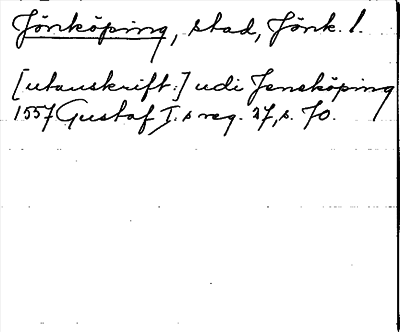 Jönköping, stad, Jönk. l.
[utanskrift:] udi Jensköping
1557 Gustaf I:s reg. 27, s. 70.